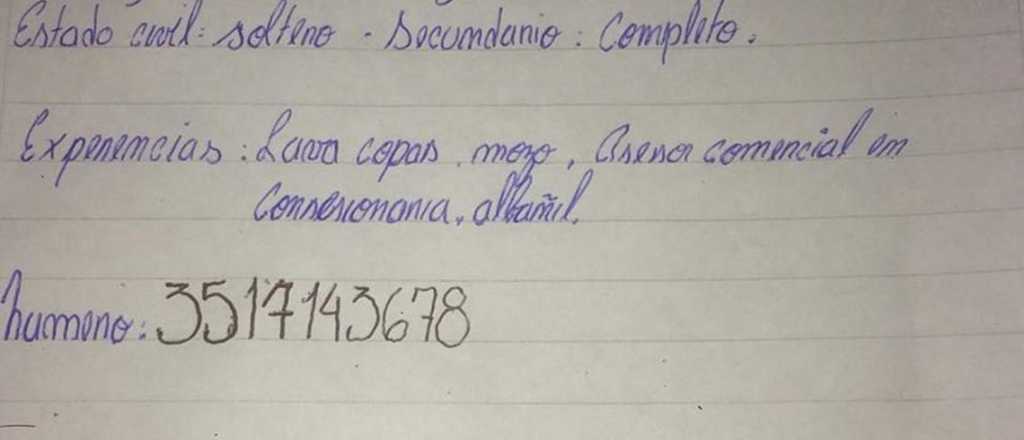 Estado civil: soltero - Secundario: Completo.
Experiencias: Lava copas, mozo, Asesor comercial en
Consesionaria, albañil.
Numero: 3517143678